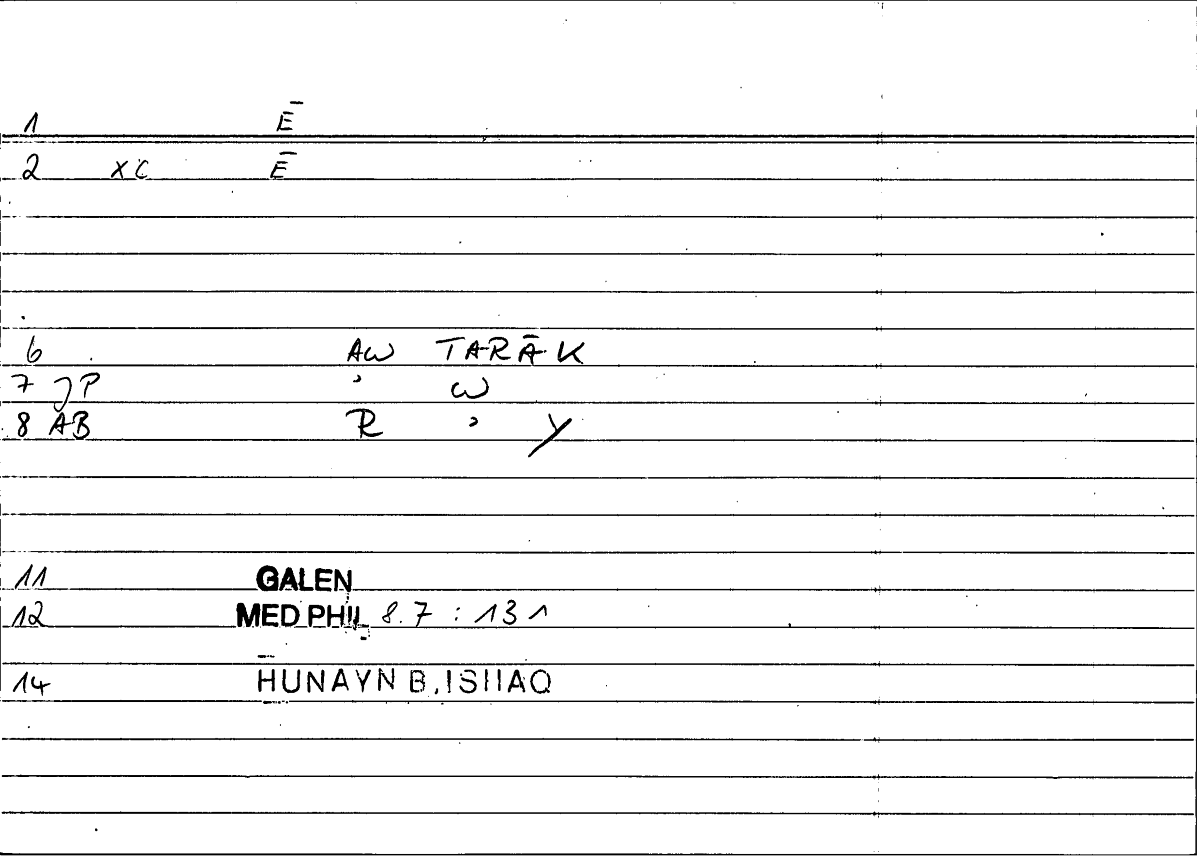 1 Ē
2 XC Ē
6 AW TARĀK
7 JP ' W
8 AB R ' Y
11 GALEN
12 MED PHIL 8.7 : 131
14 H̄UNAYN B. ISIIAQ